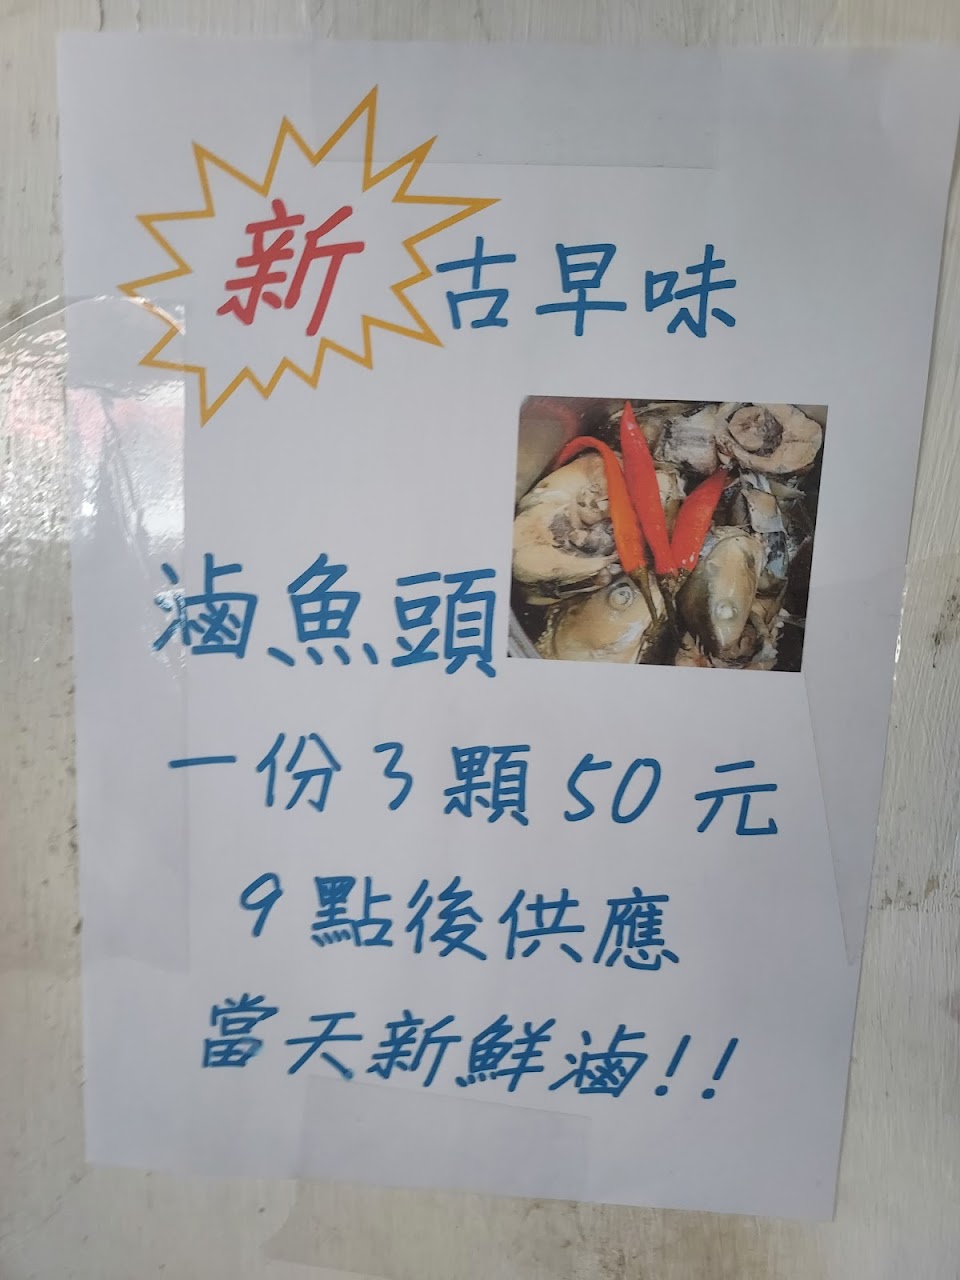 新 古早味
滷魚頭
一份3顆50元
9點後供應
當天新鮮滷!!